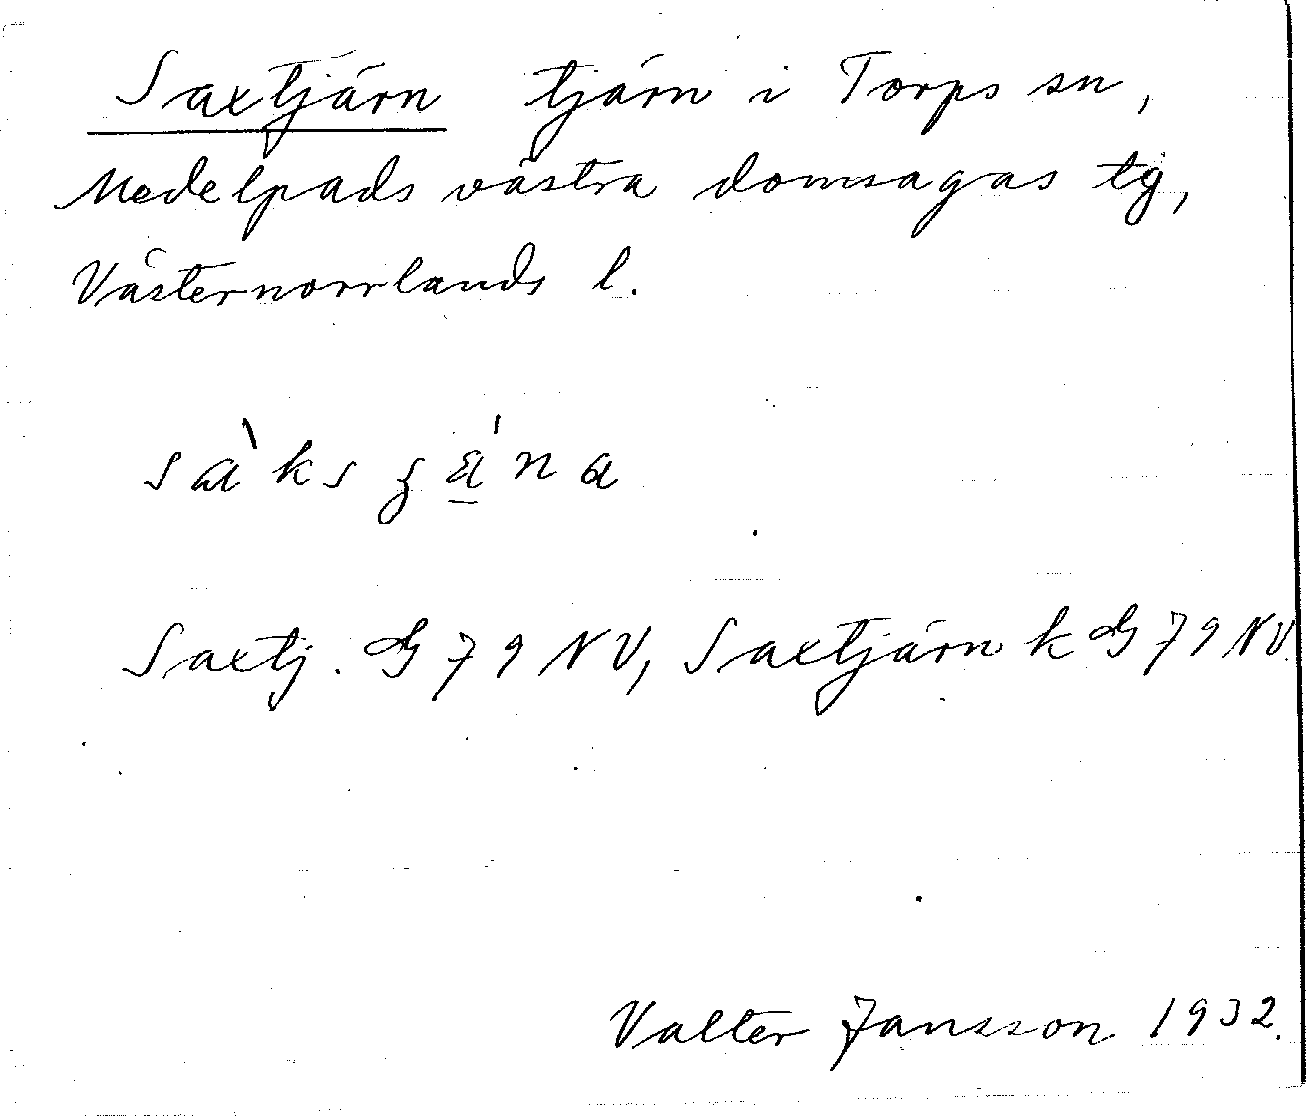 Saxtjärn tjärn i Torps sn,
Medelpads västra domsagas tg,
Västernorrlands l.
sàksʒä̱́na
Saxtj. GS 79 NV, Saxtjärn k GS 79 NV.
Valter Jansson 1932.